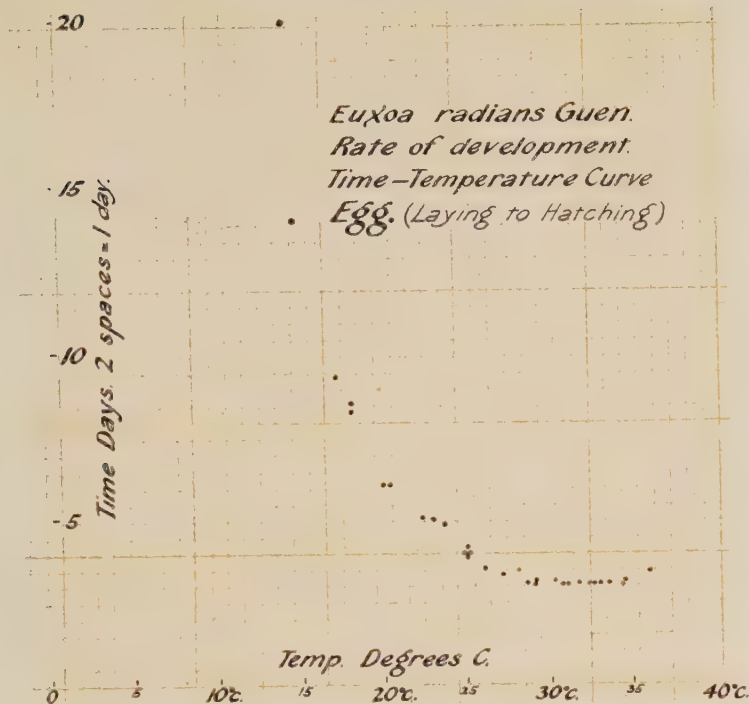 20
Euxoa radians Guen.
Rate of development.
Time-Temperature Curve
Egg. (Laying to Hatching)
15
10
5
Time Days. 2 spaces = 1 day.
Temp. Degrees C.
0 5 10°C. 15 20°C. 25 30°C. 35 40°C.